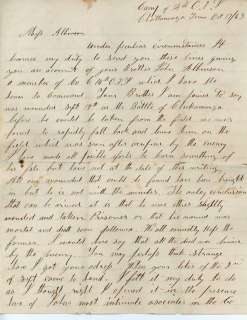 Camp of 
Chattanooga Tenn Oct 17/63
Miss Albinson
Under peculiar circumstances it
becomes my duty to send you these lines giving
you an account of your Brother John Albinson
a member of Co
to Command. Your Brother I am sorry to say
was wounded Sept 19th in the Battle of Chickamauga
before he could be taken from the field we were
forced to rapidly fall back and leave him on the
field which was soon after overrun by the enemy
I have made all possible efforts to learn something of
his fate but have not at the date of this writing
All our wounded that could be found have been brought
in but he is not with the number. The only conclusion
that can be arrived at is that he was either slightly
wounded and taken Prisoner or that his wound was
mortal and death soon followed. We all earnestly hope the
former. I would here say that all the dead were buried
by the enemy. You may perhaps think strange
how I got your address. When your letter of the
of Sept came to hand I felt it my duty to do
as I thought right I opened it in the presence
two of John's most intimate associates in the Co